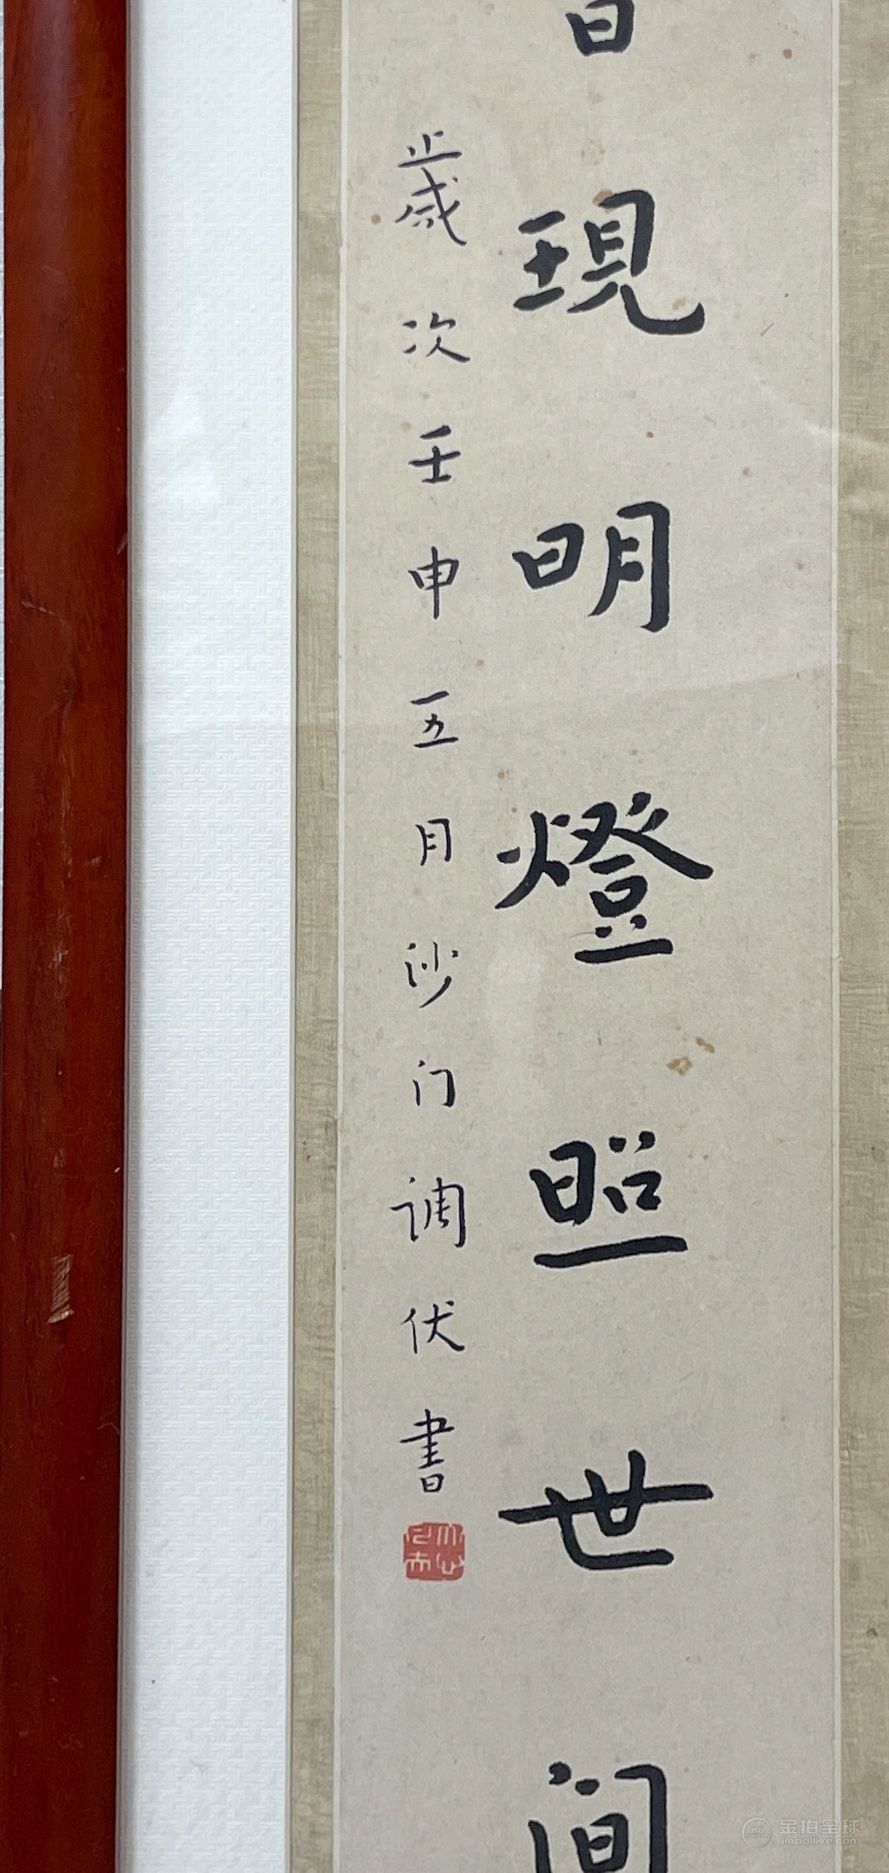 現明燈照世间
歲次壬申五月沙门调伏書
金拍全球
jinpailive.com